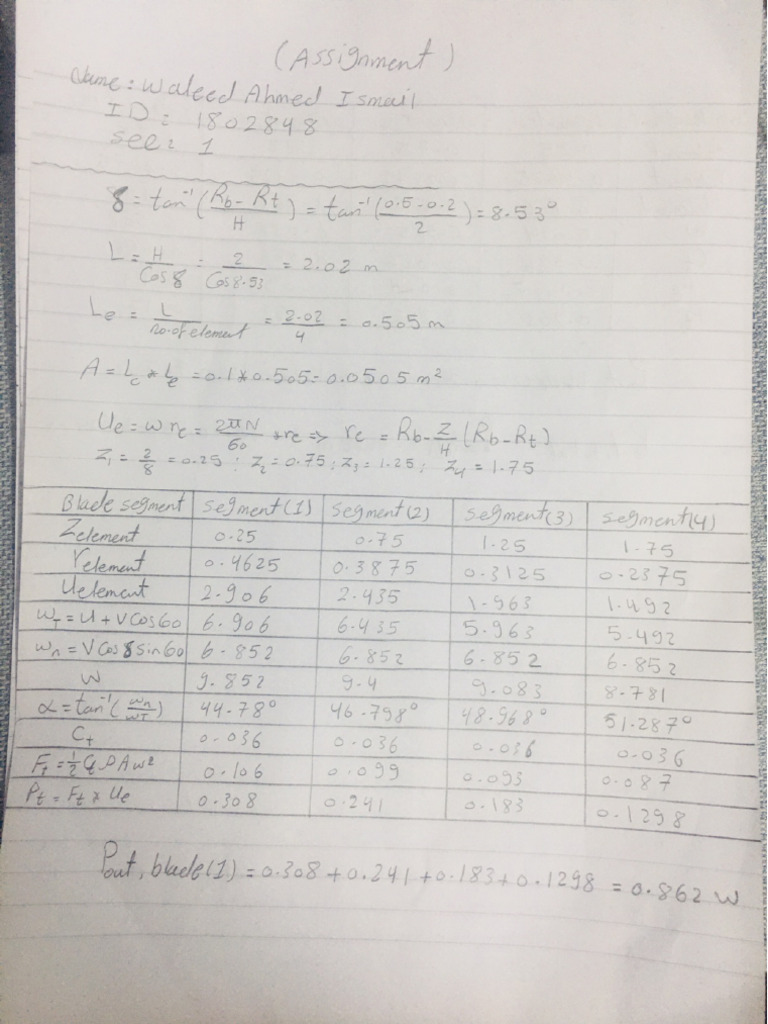 (Assignment)
Name: Waleed Ahmed Ismail
ID: 1802848
sec: 1
γ = tan⁻¹(Rb - Rt / H) = tan⁻¹(0.5 - 0.2 / 2) = 8.53°
L = H / Cos γ = 2 / Cos 8.53 = 2.02 m
Le = L / no. of element = 2.02 / 4 = 0.505 m
A = Lc * Le = 0.1 * 0.505 = 0.0505 m²
Ue = w re = 2πN / 60 * re => re = Rb - Z/H (Rb - Rt)
Z₁ = 2/8 = 0.25 ; Z₂ = 0.75 ; Z₃ = 1.25 ; Z₄ = 1.75
Blade segment segment(1) segment(2) segment(3) segment(4)
Zelement 0.25 0.75 1.25 1.75
relement 0.4625 0.3875 0.3125 0.2375
Uelement 2.906 2.435 1.963 1.492
wT = U + V Cos 60 6.906 6.435 5.963 5.492
wn = V Cos γ sin 60 6.852 6.852 6.852 6.852
W 9.852 9.4 9.083 8.781
α = tan⁻¹(wn / wT) 44.78° 46.798° 48.968° 51.287°
Ct 0.036 0.036 0.036 0.036
Ft = ½ Ct ρ A w² 0.106 0.099 0.093 0.087
Pt = Ft * Ue 0.308 0.241 0.183 0.1298
Pout, blade(1) = 0.308 + 0.241 + 0.183 + 0.1298 = 0.862 W